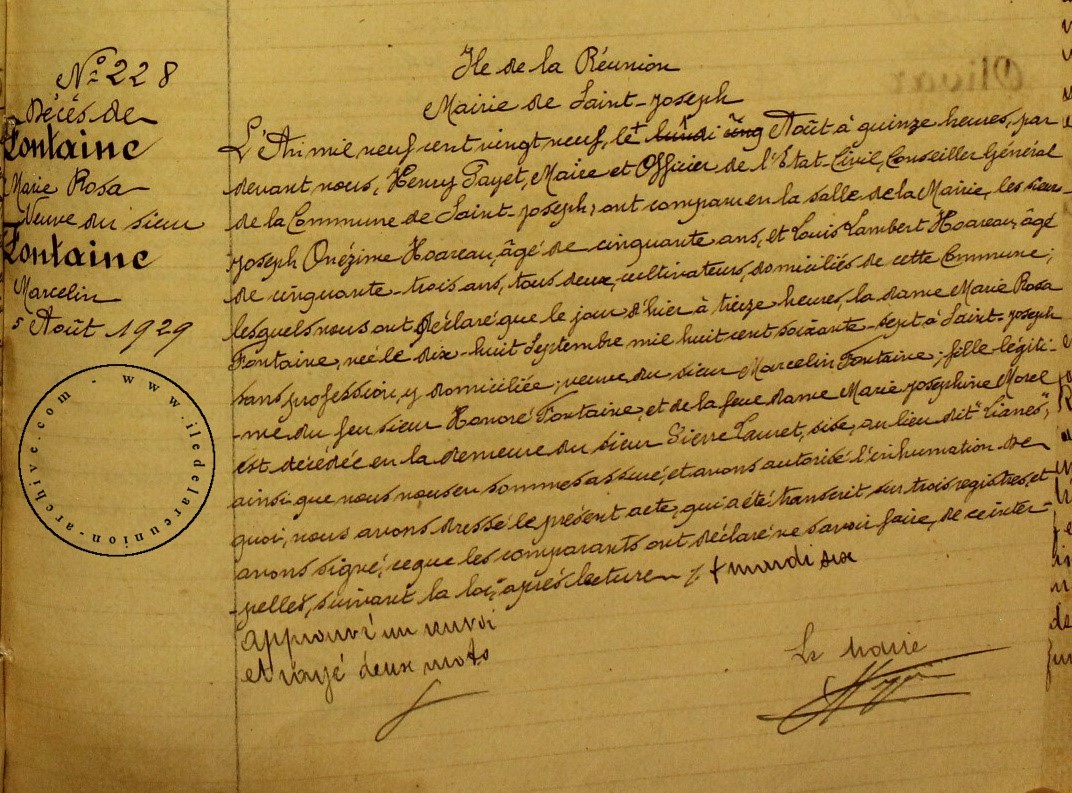 N° 228
Décès de
Fontaine
Marie Rosa
Veuve du sieur
Fontaine
Marcelin
5 Août 1929
www.iledelareunion-archive.com
Ile de la Réunion
Mairie de Saint-Joseph
L'An mil neuf cent vingt neuf, le + lundi cinq Août à quinze heures, par
devant nous, Henry Payet, Maire et Officier de l'Etat-Civil, Conseiller Général
de la Commune de Saint-Joseph, ont comparu en la salle de la Mairie, les sieurs
Joseph Onézime Hoareau, âgé de cinquante ans, et Louis Lambert Hoareau, âgé
de cinquante-trois ans, tous deux, cultivateurs, domiciliés de cette Commune;
lesquels nous ont déclaré que le jour d'hier à treize heures, la dame Marie Rosa
Fontaine, née le dix-huit Septembre mil huit cent soixante-sept à Saint-Joseph
sans profession, y domiciliée; veuve du sieur Marcelin Fontaine; fille légiti-
-me du feu sieur Honoré Fontaine, et de la feue dame Marie Joséphine Morel
est décédée en la demeure du sieur Pierre Lauret, sise, au lieu dit "Lianes",
ainsi que nous nous en sommes assuré, et avons autorisé l'inhumation de
quoi, nous avons dressé le présent acte, qui a été transcrit sur trois registres, et
avons signé, ce que les comparants ont déclaré ne savoir faire, de ce inter-
-pellés, suivant la loi, après lecture + mardi six
approuvé un renvoi
et rayé deux mots
Le Maire